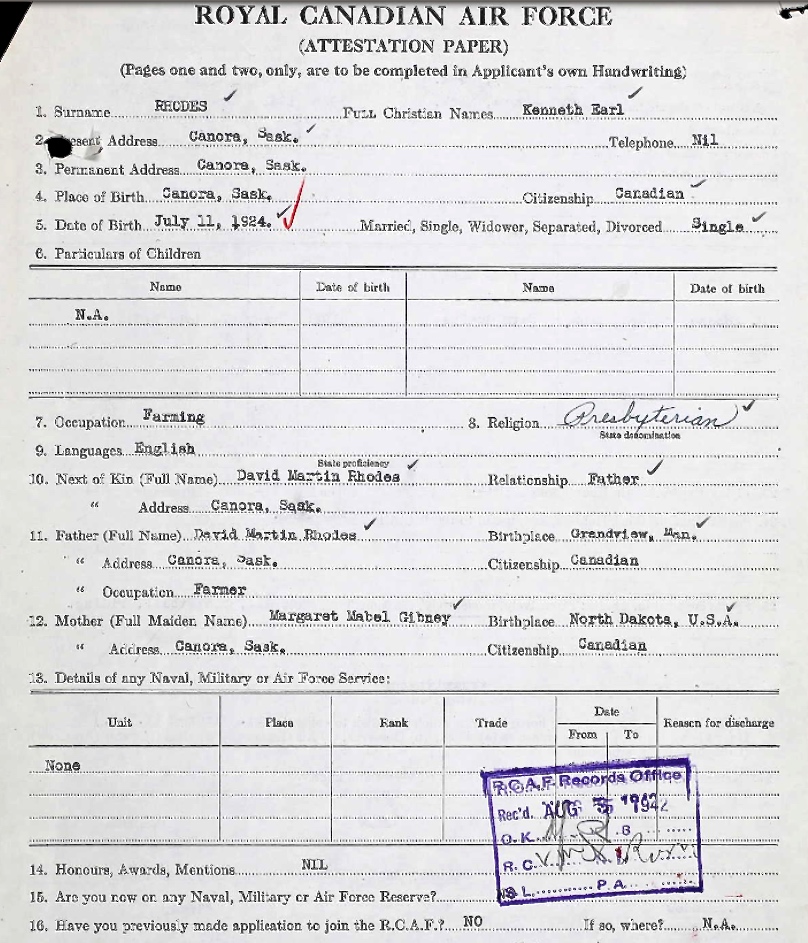 ROYAL CANADIAN AIR FORCE
(ATTESTATION PAPER)
(Pages one and two, only, are to be completed in Applicant's own Handwriting)
1. Surname RHODES FULL Christian Names Kenneth Earl
2. Present Address Canora, Sask. Telephone Nil
3. Permanent Address Canora, Sask.
4. Place of Birth Canora, Sask. Citizenship Canadian
5. Date of Birth July 11, 1924. Married, Single, Widower, Separated, Divorced Single
6. Particulars of Children
Name Date of birth Name Date of birth
N.A.
7. Occupation Farming 8. Religion Presbyterian
State denomination
9. Languages English
State proficiency
10. Next of Kin (Full Name) David Martin Rhodes Relationship Father
" Address Canora, Sask.
11. Father (Full Name) David Martin Rhodes Birthplace Grandview, Man.
" Address Canora, Sask. Citizenship Canadian
" Occupation Farmer
12. Mother (Full Maiden Name) Margaret Mabel Gibney Birthplace North Dakota, U.S.A.
" Address Canora, Sask. Citizenship Canadian
13. Details of any Naval, Military or Air Force Service:
Unit Place Rank Trade Date Reason for discharge
From To
None
R.C.A.F. Records Office
Rec'd. AUG 1942
O.K.
R.C.
P.A.
14. Honours, Awards, Mentions NIL
15. Are you now on any Naval, Military or Air Force Reserve?
16. Have you previously made application to join the R.C.A.F.? NO If so, where? N.A.